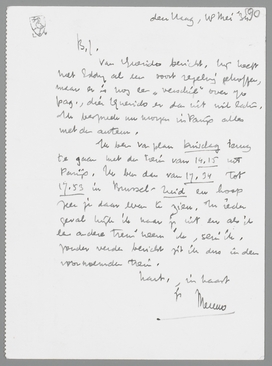 den Haag, 18 Mei 34
(90
B.J.
Van Querido bericht. Hij heeft
met Eddy al een soort regeling getroffen,
maar er is nog een "verschil" over 30
pag., die Querido er dan uit wil laten.
Ik bespreek nu morgen in Parijs alles
met den auteur.
Ik ben van plan dinsdag terug
te gaan met den trein van 14.15 uit
Parijs. Ik ben dan van 17.34 tot
17.53 in Brussel-Zuid en hoop
je daar even te zien. In ieder
geval kijk ik naar je uit en als ik
een andere trein neem, sein ik.
Zonder verder bericht zit ik dus in den
voornoemden trein.
hart., in haast
je Menno